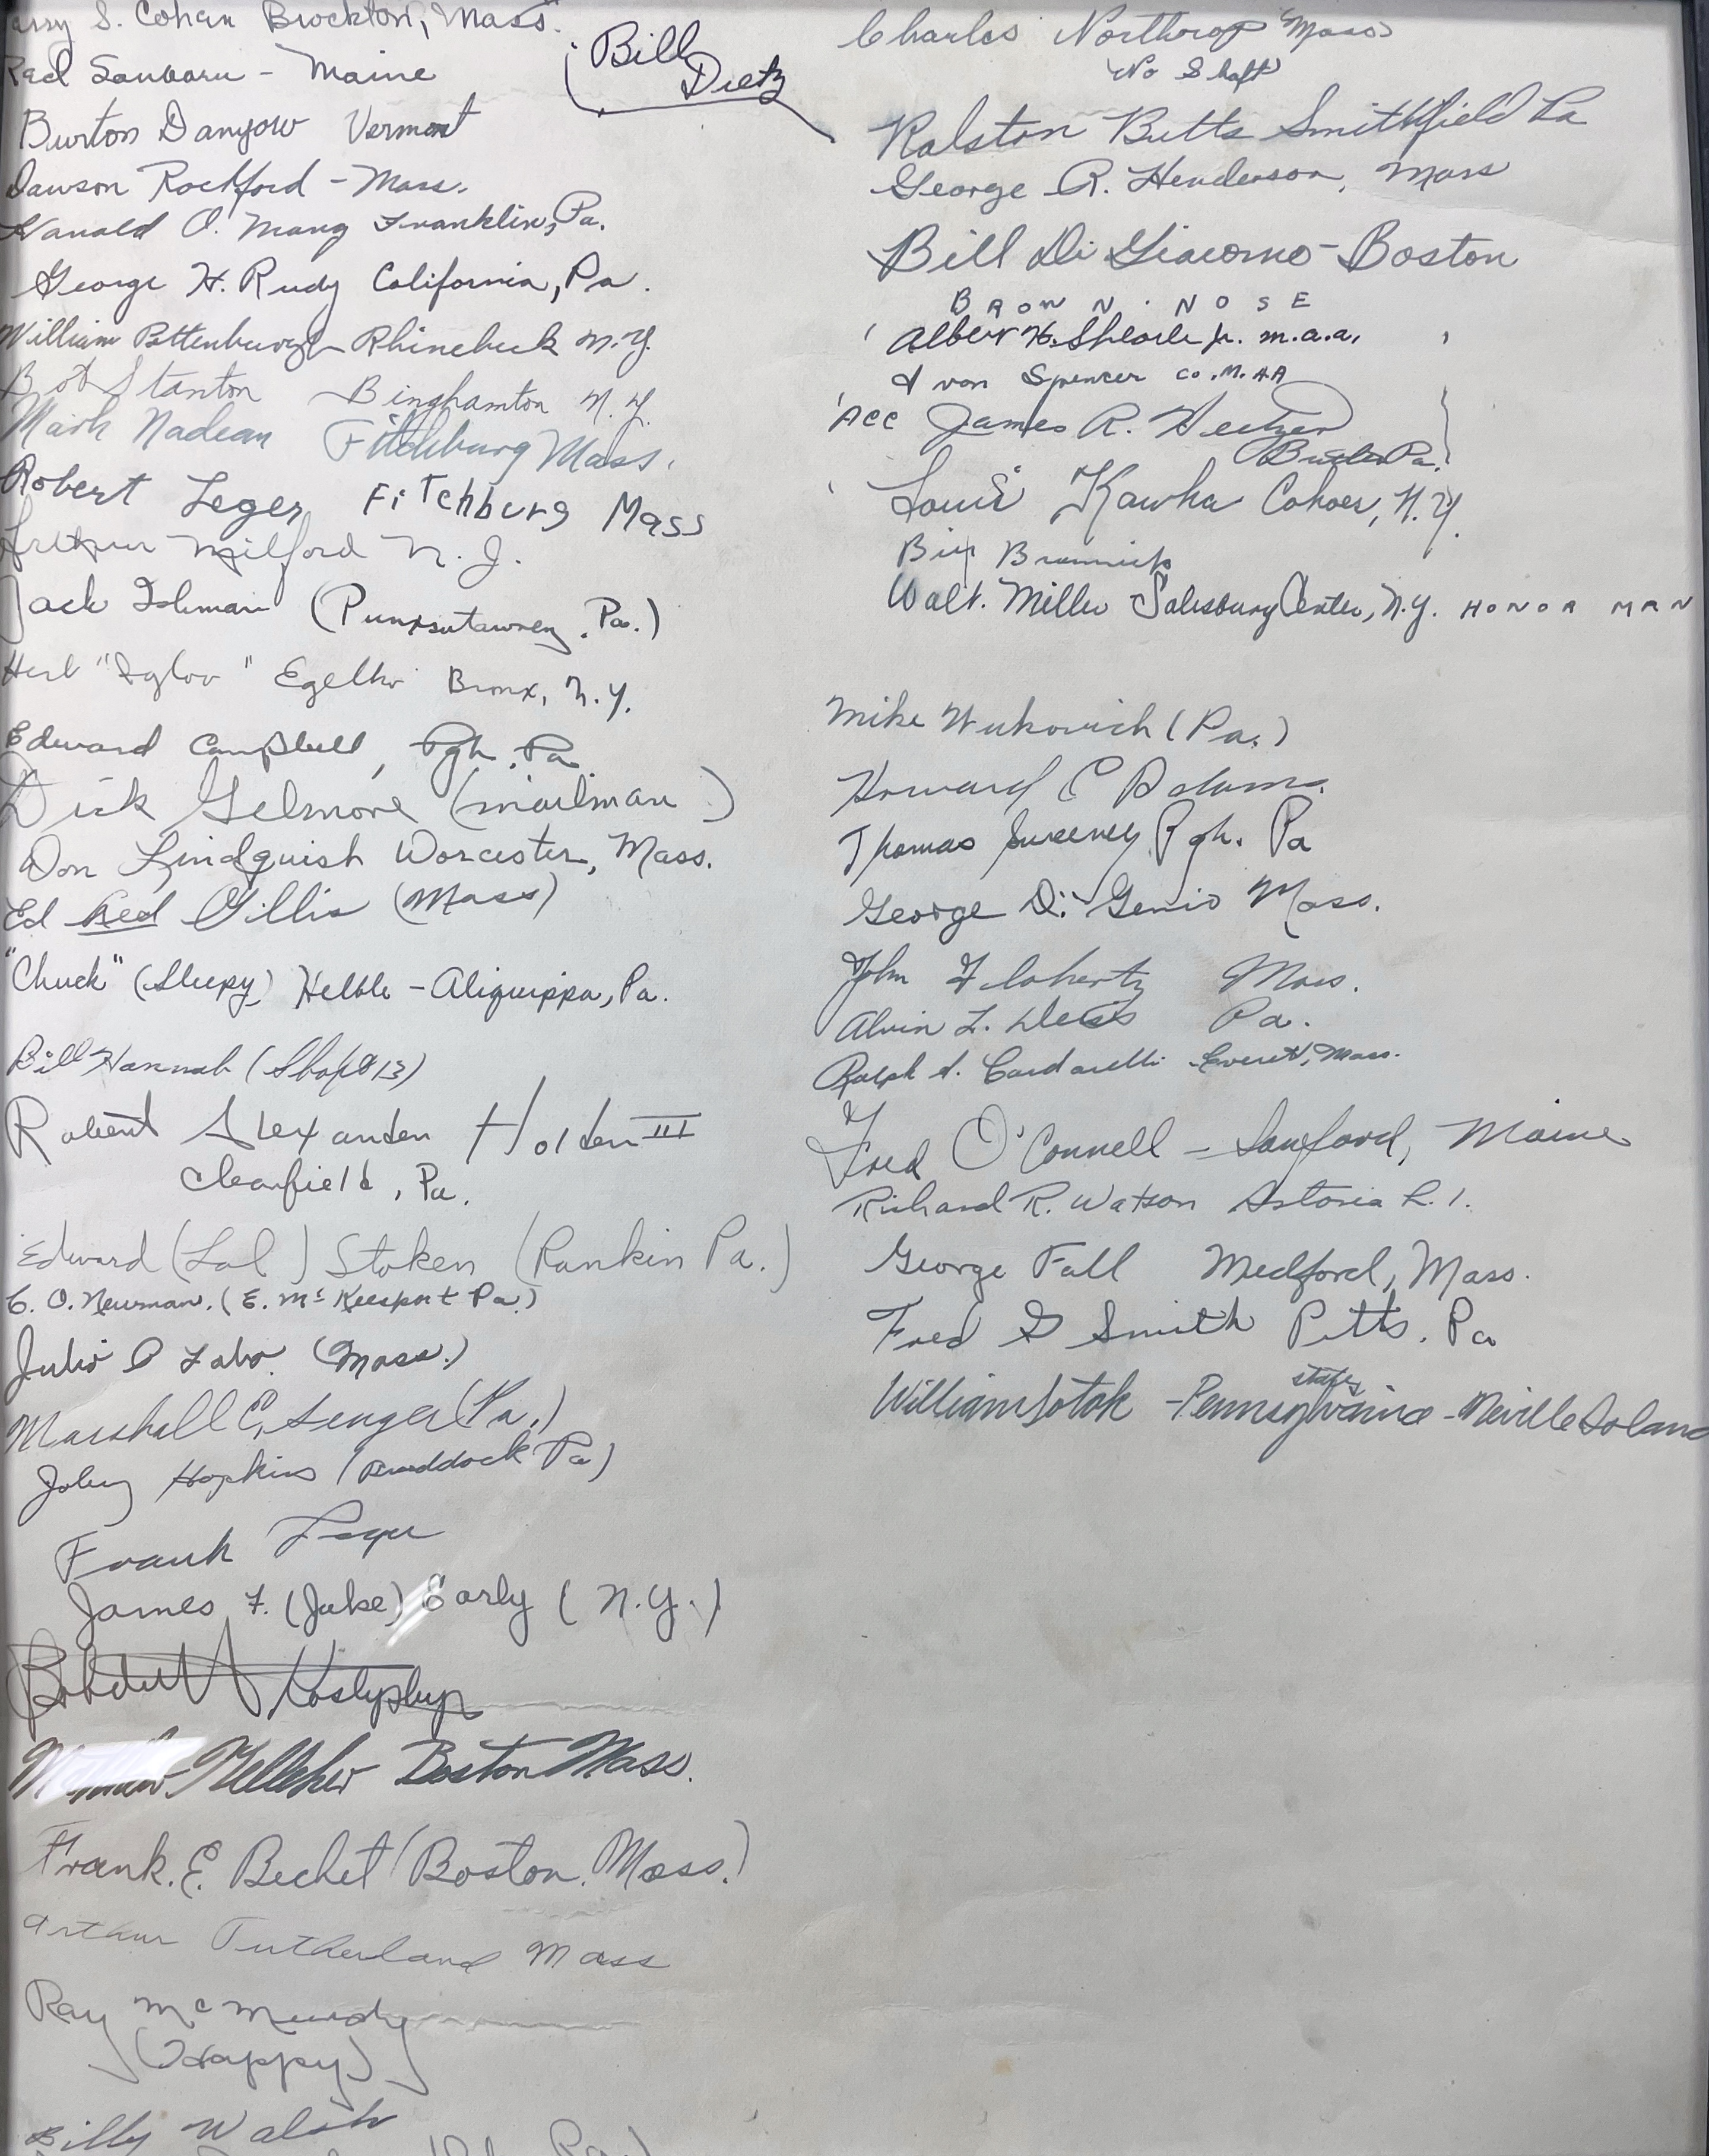 S. Cohan Brockton, Mass.
Red Sanborn - Maine
Burton Danyow Vermont
Dawson Rockford - Mass.
Harold O. Mong Franklin, Pa.
George H. Rudy California, Pa.
William Pottenburgh Rhinebeck N.Y.
Bob Stanton Binghamton N.Y.
Mark Nadeau Fitchburg Mass.
Robert Leger Fitchburg Mass
Arthur Milford N.J.
Jack Ishman (Punxsutawney, Pa.)
Herb "Igloo" Bronx, N.Y.
Edward Campbell, Pgh. Pa.
Dick Gilmore (mailman)
Don Lindquish Worcester, Mass.
Ed Red Gillis (Mass)
"Chuck" (Sleepy) Helble - Aliquippa, Pa.
Bill Hannah (Shop# 13)
Robert Alexander Holden III
Clearfield, Pa.
Edward (Lal) Stoken (Rankin Pa.)
C. O. Newman. (E. McKeesport Pa.)
Julio P Labo. (Mass.)
Marshall E. Senger (Pa.)
Hopkins (Braddock Pa)
Frank
James F. (Jake) Early (N.Y.)
Boston Mass.
Frank. E. Bechet (Boston. Mass.)
Arthur Tutherland Mass
Ray McMurdy
(Happy)
Billy Walsh
Bill
Dietz
Charles Northrop Mass
No Shaft
Ralston Butts Smithfield Pa
George R. Henderson, Mass
Bill Di Giacomo - Boston
BROWN . NOSE
Albert H. Jr. M.A.A.
Spencer CO. M.A.A
Acc James R.
Butler Pa.
Louis Kawka Cohoes, N.Y.
Bill
Walt. Miller Salesbury Center, N.Y. HONOR MAN
Mike Wukovich (Pa.)
Howard E Adams.
Thomas Sweeney Pgh. Pa
George Di Genio Mass.
John Flaherty Mass.
Alvin L. Weiss Pa.
Ralph A. Cardarelli Everett, Mass.
Fred O'Connell - Sanford, Maine
Richard R. Watson Astoria L.I.
George Fall Medford, Mass.
Fred G Smith Pitts. Pa
states
William Sotak - Pennsylvania - Neville Island